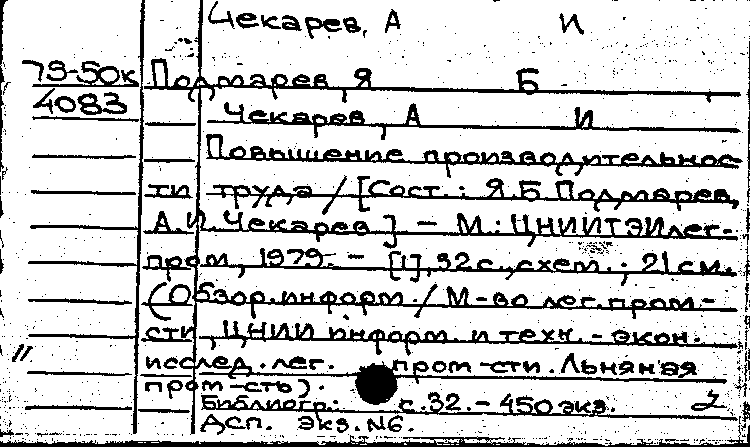 Чекарев, А И
79-50к Подмарев, Я Б
4083 Чекарев, А И
Повышение производительнос-
ти труда / [Сост.: Я.Б. Подмарев,
А.И. Чекарев] - М.: ЦНИИТЭИлег-
пром, 1979. - [1], 32 с., схем.; 21 см.
(Обзор. информ. / М-во лег. пром-
сти, ЦНИИ информ. и техн.-экон.
исслед. лег. пром-сти. Льняная
пром-сть).
Библиогр.: с. 32. - 450 экз. 2
ДСП. Экз. N6.